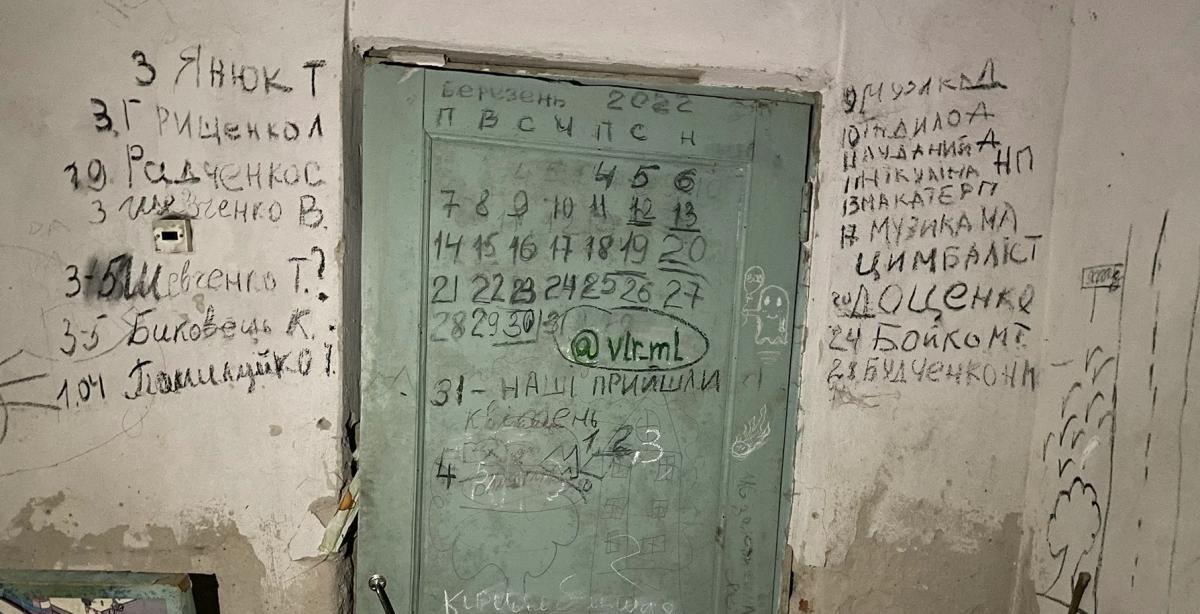 3 Янюк Т
3. Грищенко Л
19 Радченко С
3 Шевченко В.
3-5 Шевченко Т.?
3-5 Биковець К.
1.04
Березень 2022
П В С Ч П С Н
4 5 6
7 8 9 10 11 12 13
14 15 16 17 18 19 20
21 22 23 24 25 26 27
28 29 30 31
@vlr_ml
31 - НАШІ ПРИЙШЛИ
квітень
1 2 3
4
9 Музика Д
НП
13 МАКАТЕР П
17 МУЗИКА МЛ
ЦИМБАЛІСТ
20 ДОЦЕНКО
24 БОЙКО М Г
28 БУДЧЕНКО НМ